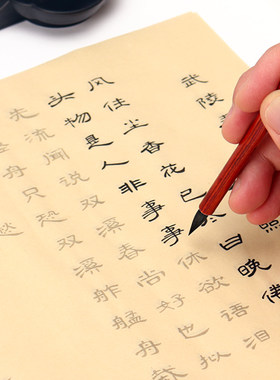 武陵
风住尘香花已尽日晚倦
头物是人非事事休欲语泪
先流闻说双溪春尚好也拟
舟只恐双溪舴艋舟载
愁